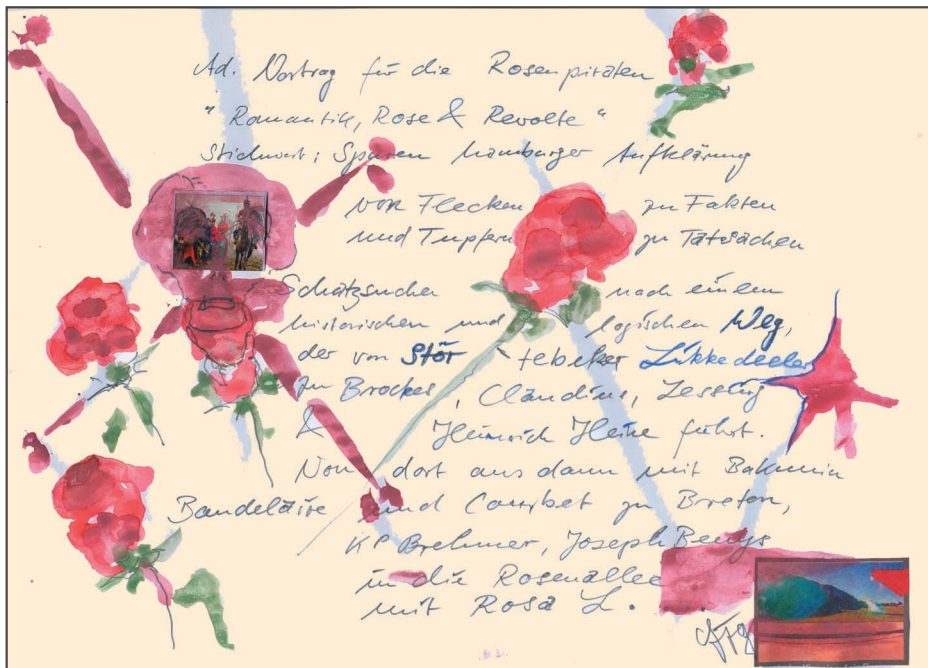 Ad. Vortrag für die Rosenpiraten
"Romantik, Rose & Revolte"
Stichwort: Spuren hamburger Aufklärung
von Flecken zu Fakten
und Tupfern zu Tatsachen
Schatzsucher nach einem
historischen und logischen Weg,
der von Störtebeker Likkedeeler
zu Brockes, Claudius, Lessing
& Heinrich Heine führt.
Von dort aus dann mit Bakunin
Baudelaire und Courbet zu Breton,
KP Brehmer, Joseph Beuys
in die Rosenallee
mit Rosa L.